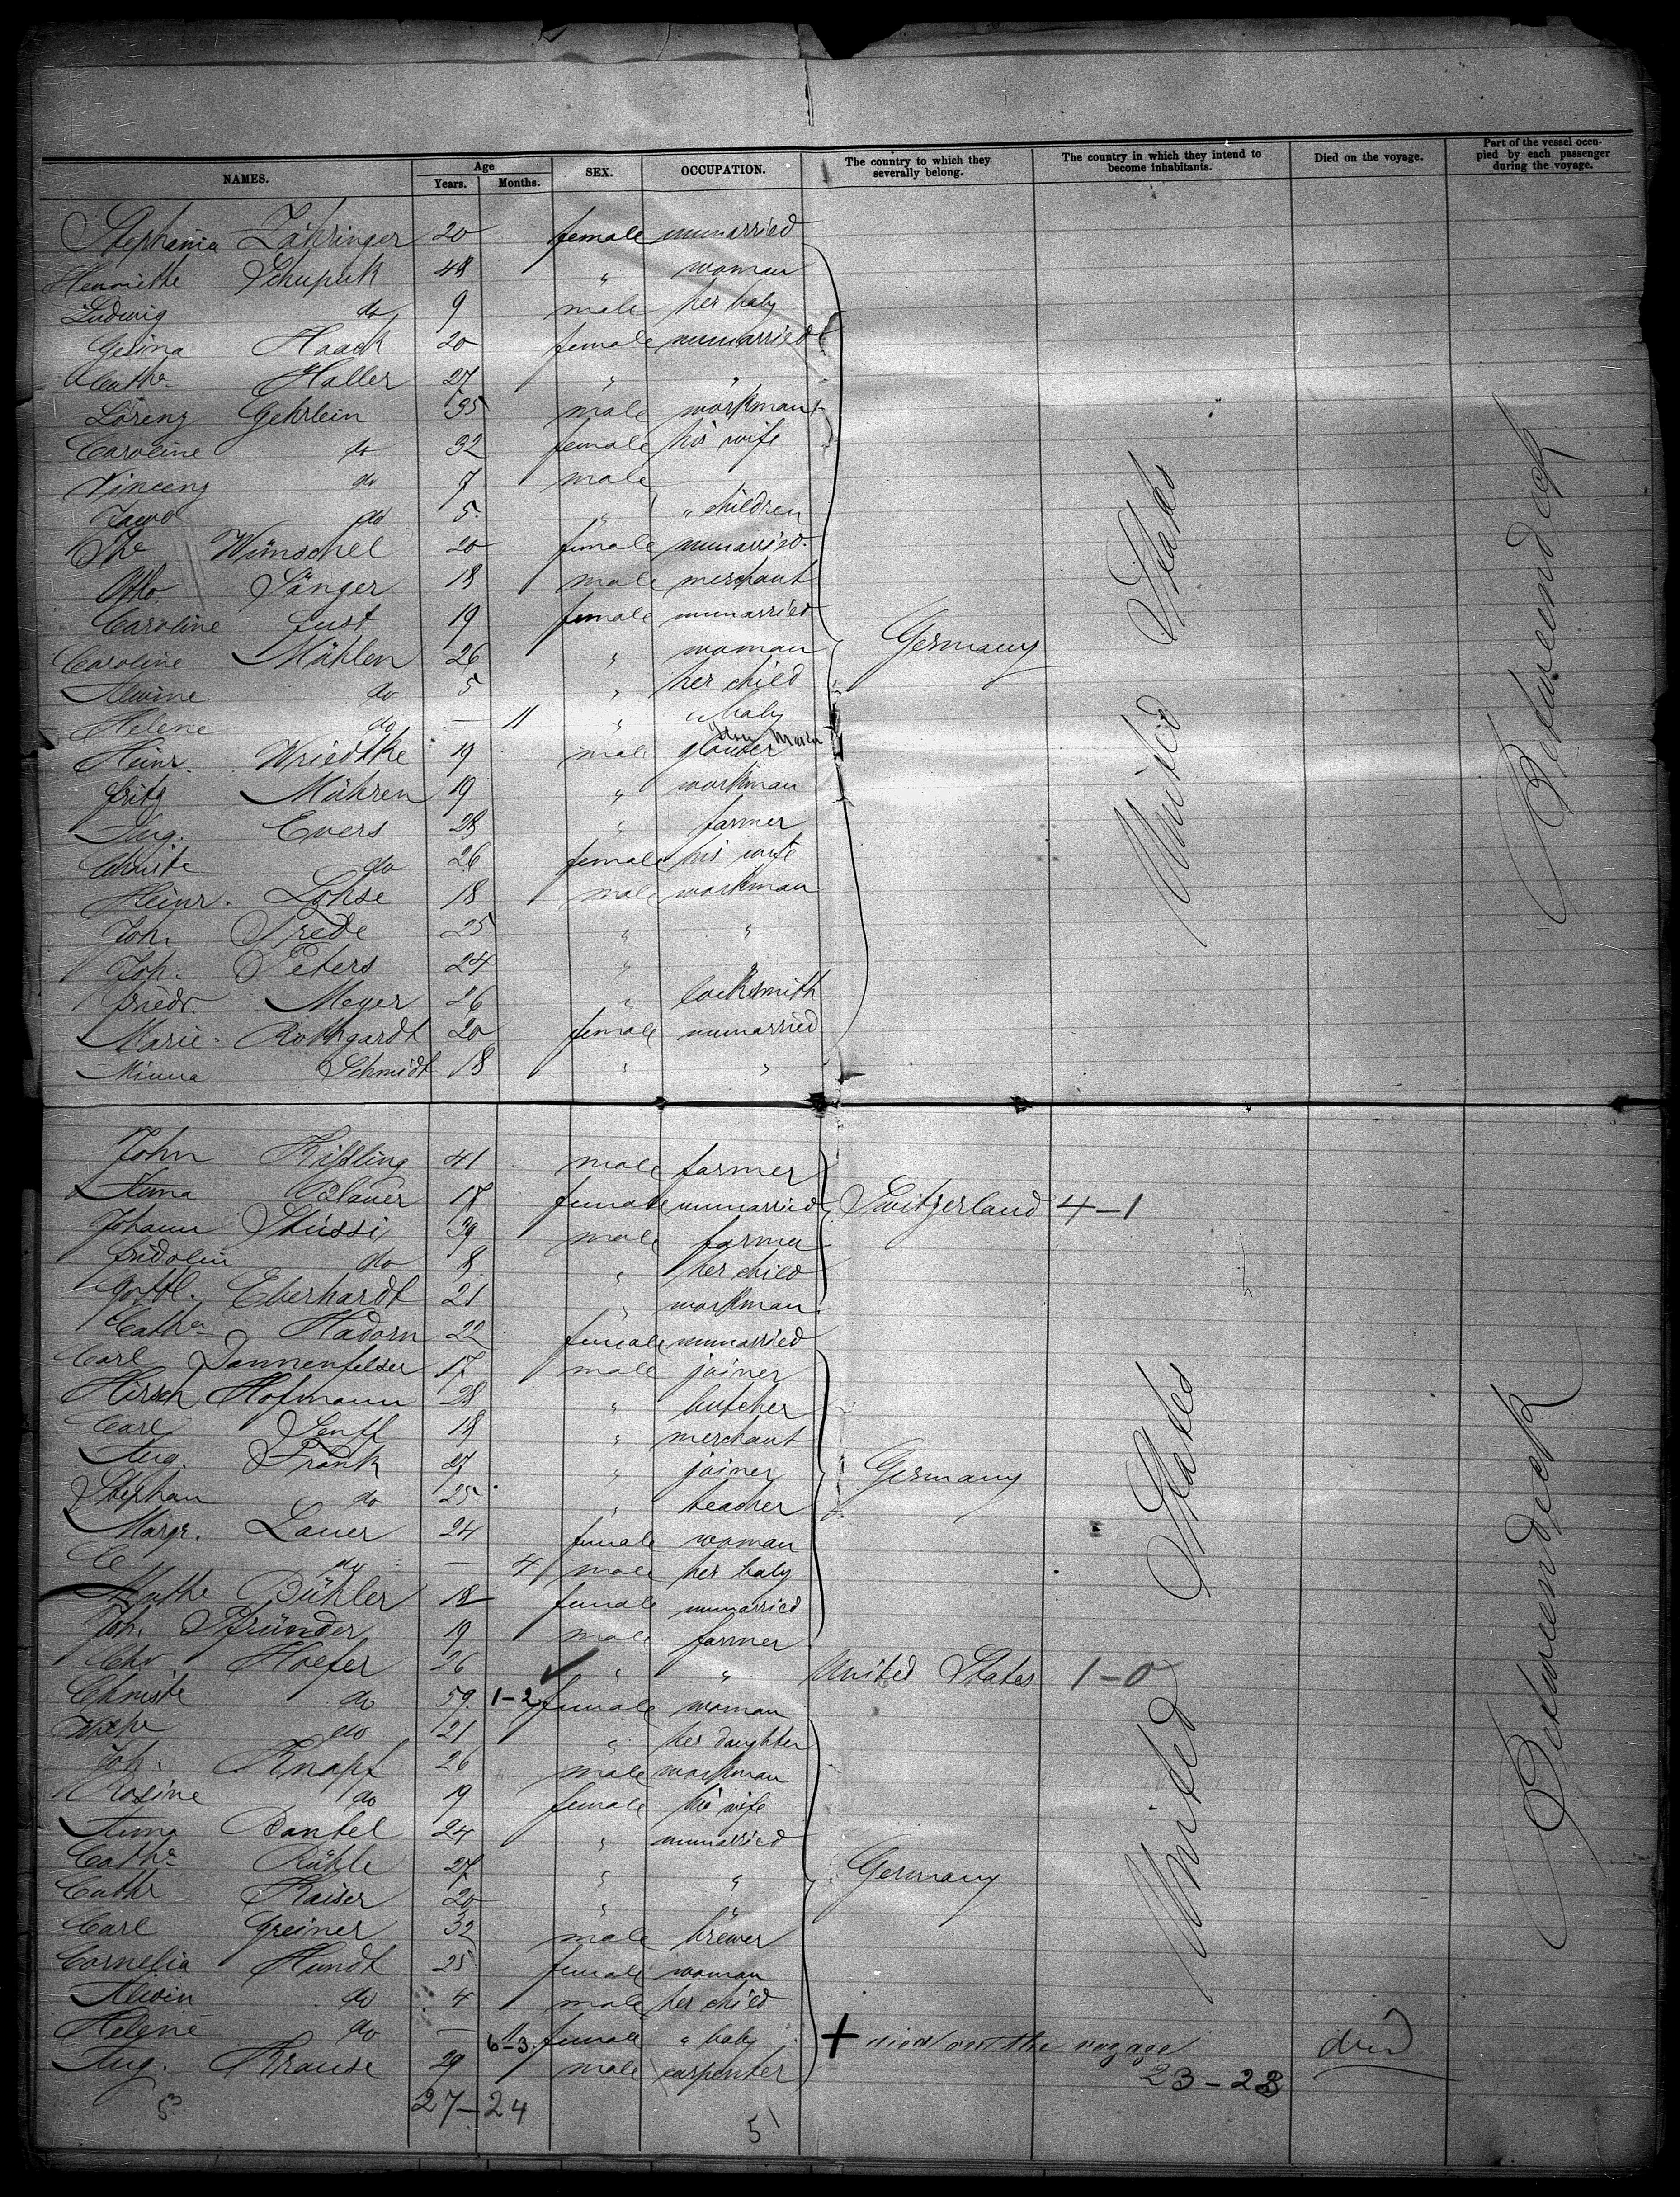 NAMES. Age Years. Months. SEX. OCCUPATION. The country to which they severally belong. The country in which they intend to become inhabitants. Died on the voyage. Part of the vessel occupied by each passenger during the voyage.
Stephania Zähringer 20 female unmarried
Henriette 48 " woman
Ludwig do 9 male her baby
Gesina Haack 20 female unmarried
Cathe. Haller 27 " "
Lorenz Gehrlein 35 male workman
Caroline do 32 female his wife
Vincenz do 7 male
do 5 " " children
Wünschel 20 female unmarried
Otto Sänger 18 male merchant
Caroline Lust 19 female unmarried
Caroline Mählen 26 " woman Germany
do 5 " her child
Helene do — 11 " " baby
Heinr. Wriedtke 19 male
Fritz Mähren 19 " workman
Aug. Evers 28 " farmer
Christe do 26 female his wife
Heinr. Lohse 18 male workman
Joh. Frede 25 " "
Joh. Peters 24 " "
Friedr. Meyer 26 " locksmith
Marie Rothgardt 20 female unmarried
Minna Schmidt 18 " "
United States
Betweendeck
John Kißling 41 male farmer
Anna Blauer 17 female unmarried Switzerland 4-1
Johann Stüssi 39 male farmer
Fridolin do 8 " her child
Gottl. Eberhardt 21 " workman
Cathe. Hadorn 22 female unmarried
Carl Dannenfelser 17 male joiner
Hirsch Hofmann 28 " butcher
Carl Senff 18 " merchant
Aug. Frank 27 " joiner Germany
Stephan do 25 " teacher
Margr. Lauer 24 female woman
do — 4 male her baby
Bühler 18 female unmarried
Joh. Pfründer 19 male farmer
Chr. Hoefer 26 " " United States 1-0
Christe do 59 1-2 female woman
do 21 " her daughter
Joh. Knapf 26 male workman
Rosine do 19 female his wife
Anna Bantel 24 " unmarried
Cathe. Rühle 27 " " Germany
Cathe Kaiser 20 " "
Carl Greiner 32 male brewer
Cornelia Hundt 25 female woman
Alwin do 4 male her child
Helene do — 11 6-3 female " baby + died on the voyage died
Aug. Krause 29 male carpenter 23-23
27-24
United States
Betweendeck